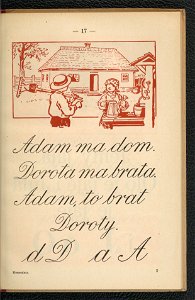 — 17 —
Adam ma dom.
Dorota ma brata.
Adam, to brat
Doroty.
d D a A
2